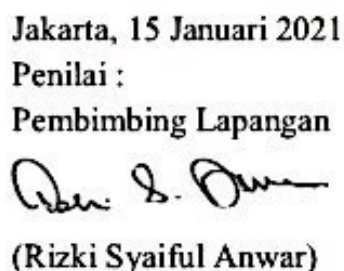 Jakarta, 15 Januari 2021
Penilai :
Pembimbing Lapangan
(Rizki Syaiful Anwar)